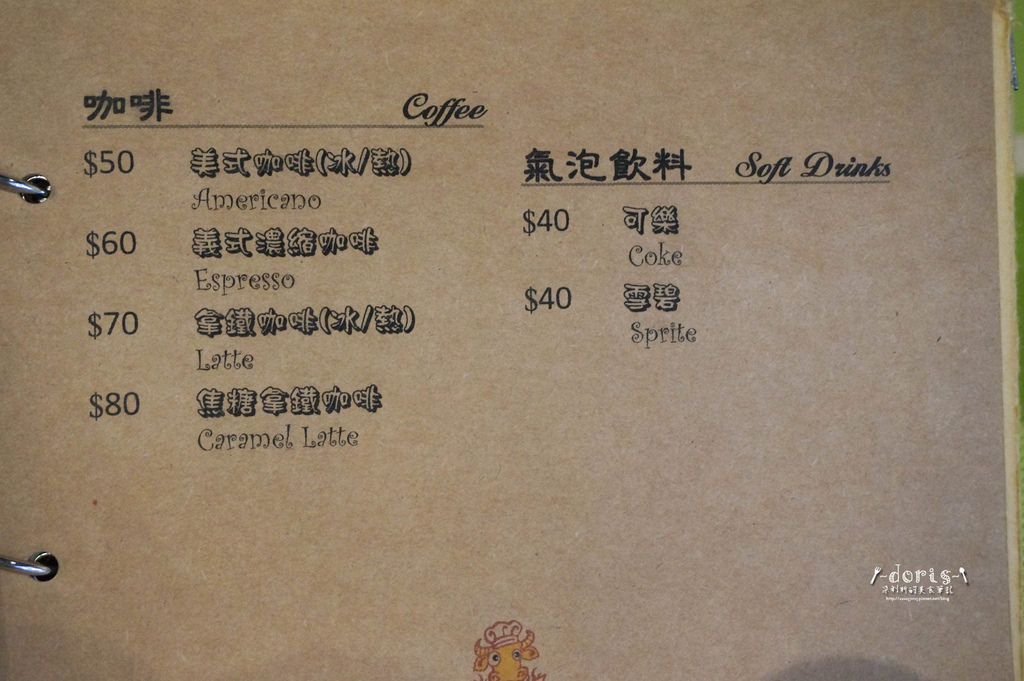 咖啡 Coffee
$50 美式咖啡(冰/熱)
Americano
$60 義式濃縮咖啡
Espresso
$70 拿鐵咖啡(冰/熱)
Latte
$80 焦糖拿鐵咖啡
Caramel Latte
氣泡飲料 Soft Drinks
$40 可樂
Coke
$40 雪碧
Sprite
-doris-